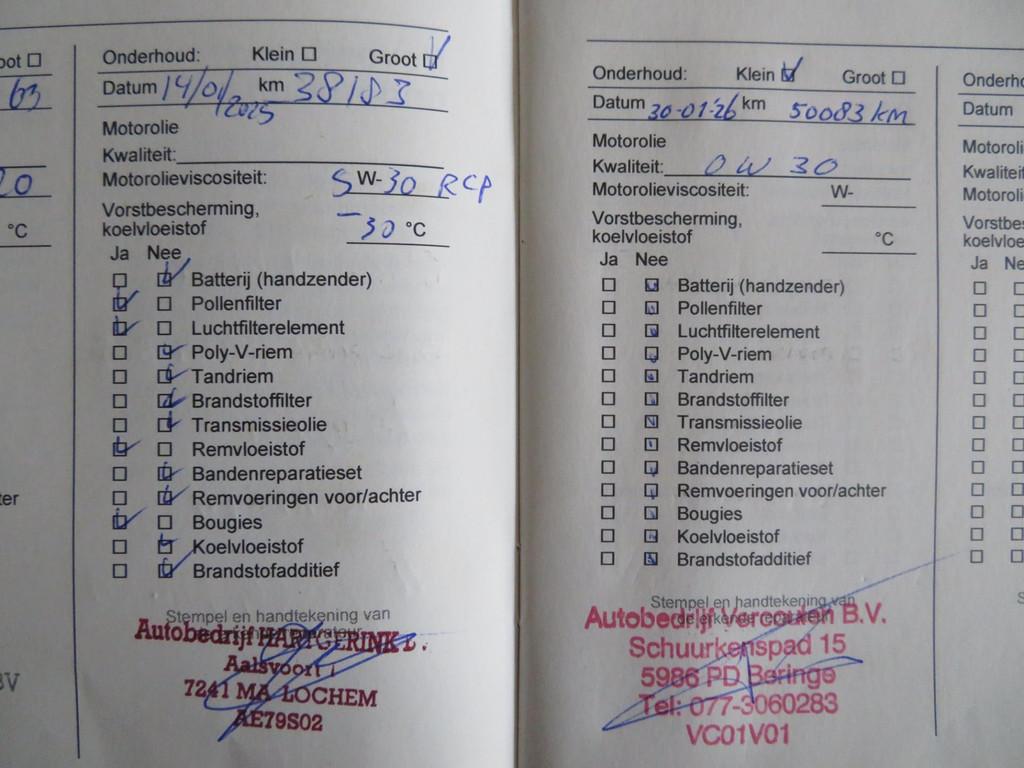 oot ☐
63
20
°C
ter
BV
Onderhoud: Klein ☐ Groot ☑
Datum 14/01/2025 km 38183
Motorolie
Kwaliteit:
Motorolieviscositeit: 5 W-30 RCP
Vorstbescherming,
koelvloeistof -30 °C
Ja Nee
☐ ☑ Batterij (handzender)
☑ ☐ Pollenfilter
☑ ☐ Luchtfilterelement
☐ ☑ Poly-V-riem
☐ ☑ Tandriem
☐ ☑ Brandstoffilter
☐ ☑ Transmissieolie
☑ ☐ Remvloeistof
☐ ☑ Bandenreparatieset
☐ ☑ Remvoeringen voor/achter
☑ ☐ Bougies
☐ ☑ Koelvloeistof
☐ ☑ Brandstofadditief
Stempel en handtekening van
Autobedrijf HARTGERINK
Aalsvoort
7241 MA LOCHEM
AE79S02
Onderhoud: Klein ☑ Groot ☐
Datum 30-01-26 km 50083 KM
Motorolie
Kwaliteit: 0 W 30
Motorolieviscositeit: W-
Vorstbescherming,
koelvloeistof °C
Ja Nee
☐ ☑ Batterij (handzender)
☐ ☑ Pollenfilter
☐ ☑ Luchtfilterelement
☐ ☑ Poly-V-riem
☐ ☑ Tandriem
☐ ☑ Brandstoffilter
☐ ☑ Transmissieolie
☐ ☑ Remvloeistof
☐ ☑ Bandenreparatieset
☐ ☑ Remvoeringen voor/achter
☐ ☑ Bougies
☐ ☑ Koelvloeistof
☐ ☑ Brandstofadditief
Stempel en handtekening van
de erkende reparateur
Autobedrijf Vercoulen B.V.
Schuurkenspad 15
5986 PD Beringe
Tel: 077-3060283
VC01V01
Onderho
Datum
Motoroli
Kwaliteit
Motoroli
Vorstbes
koelvloe
Ja Ne